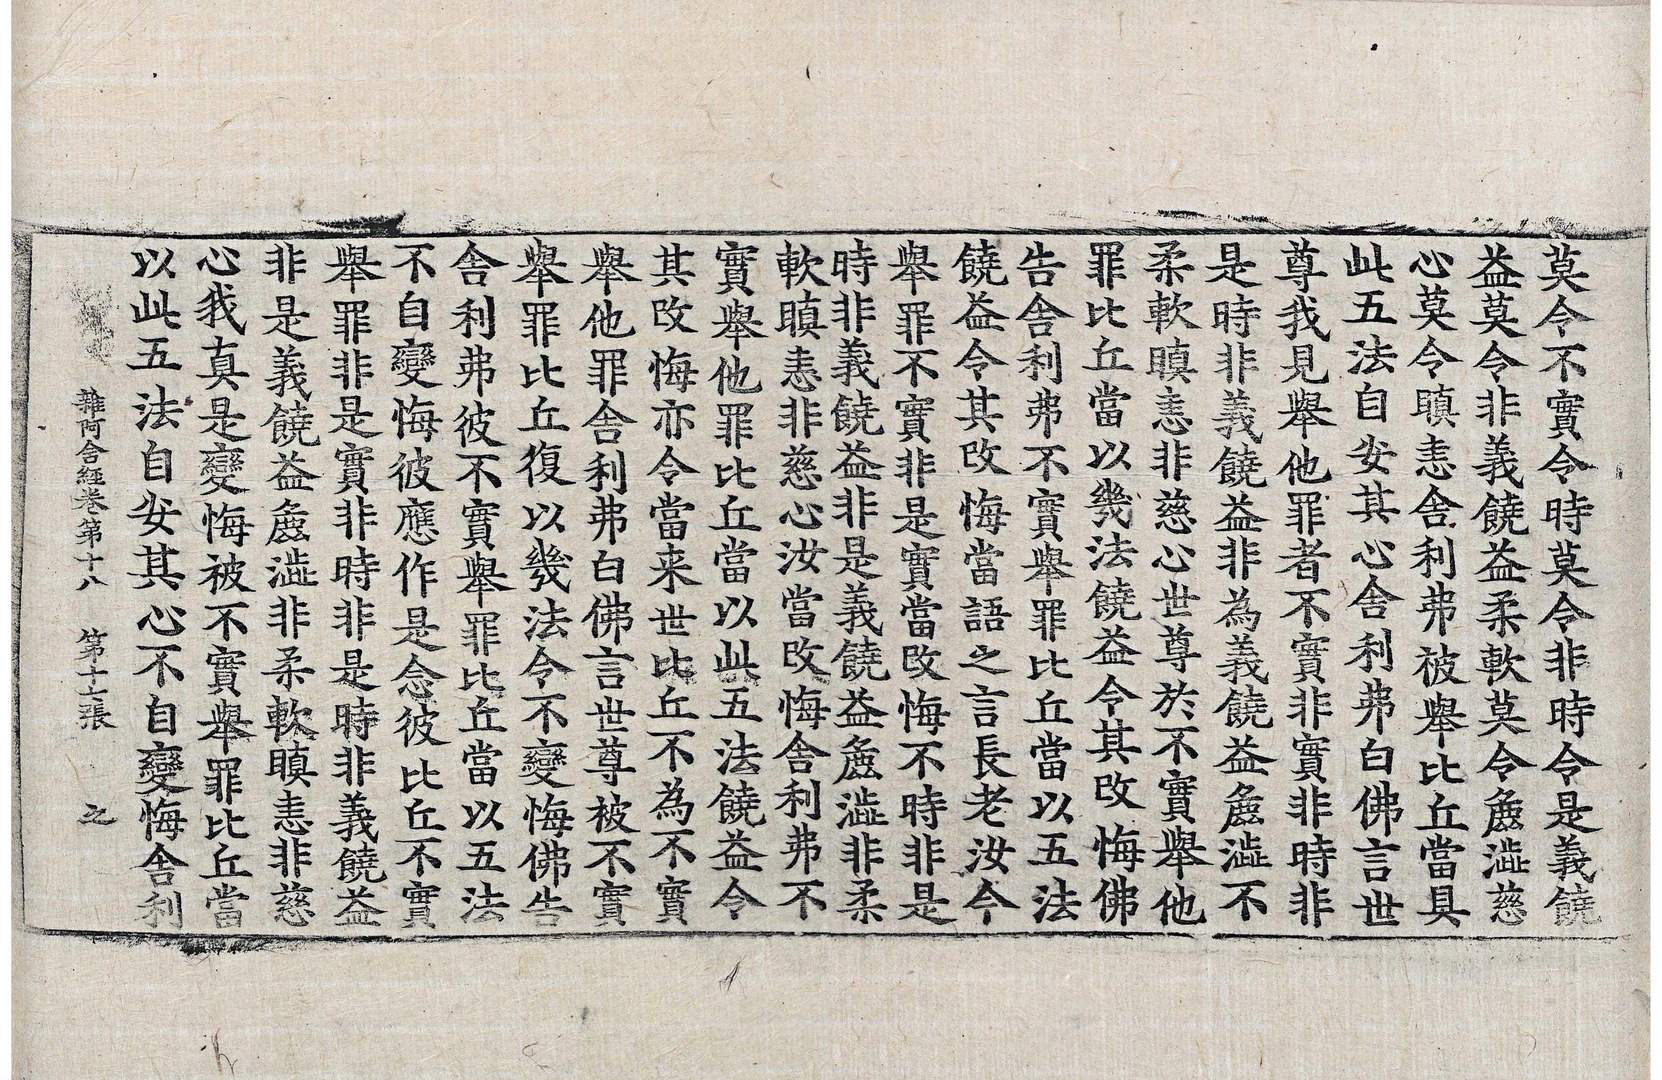 莫令不實令時莫令非時令是義饒
益莫令非義饒益柔軟莫令麁澁慈
心莫令瞋恚舍利弗被舉比丘當具
此五法自安其心舍利弗白佛言世
尊我見舉他罪者不實非實非時非
是時非義饒益非為義饒益麁澁不
柔軟瞋恚非慈心世尊於不實舉他
罪比丘當以幾法饒益令其改悔佛
告舍利弗不實舉罪比丘當以五法
饒益令其改悔當語之言長老汝今
舉罪不實非是實當改悔不時非是
時非義饒益非是義饒益麁澁非柔
軟瞋恚非慈心汝當改悔舍利弗不
實舉他罪比丘當以此五法饒益令
其改悔亦令當来世比丘不為不實
舉他罪舍利弗白佛言世尊被不實
舉罪比丘復以幾法令不變悔佛告
舍利弗彼不實舉罪比丘當以五法
不自變悔彼應作是念彼比丘不實
舉罪非是實非時非是時非義饒益
非是義饒益麁澁非柔軟瞋恚非慈
心我真是變悔被不實舉罪比丘當
以此五法自安其心不自變悔舍利
雜阿含經卷第十八 第十七張 之